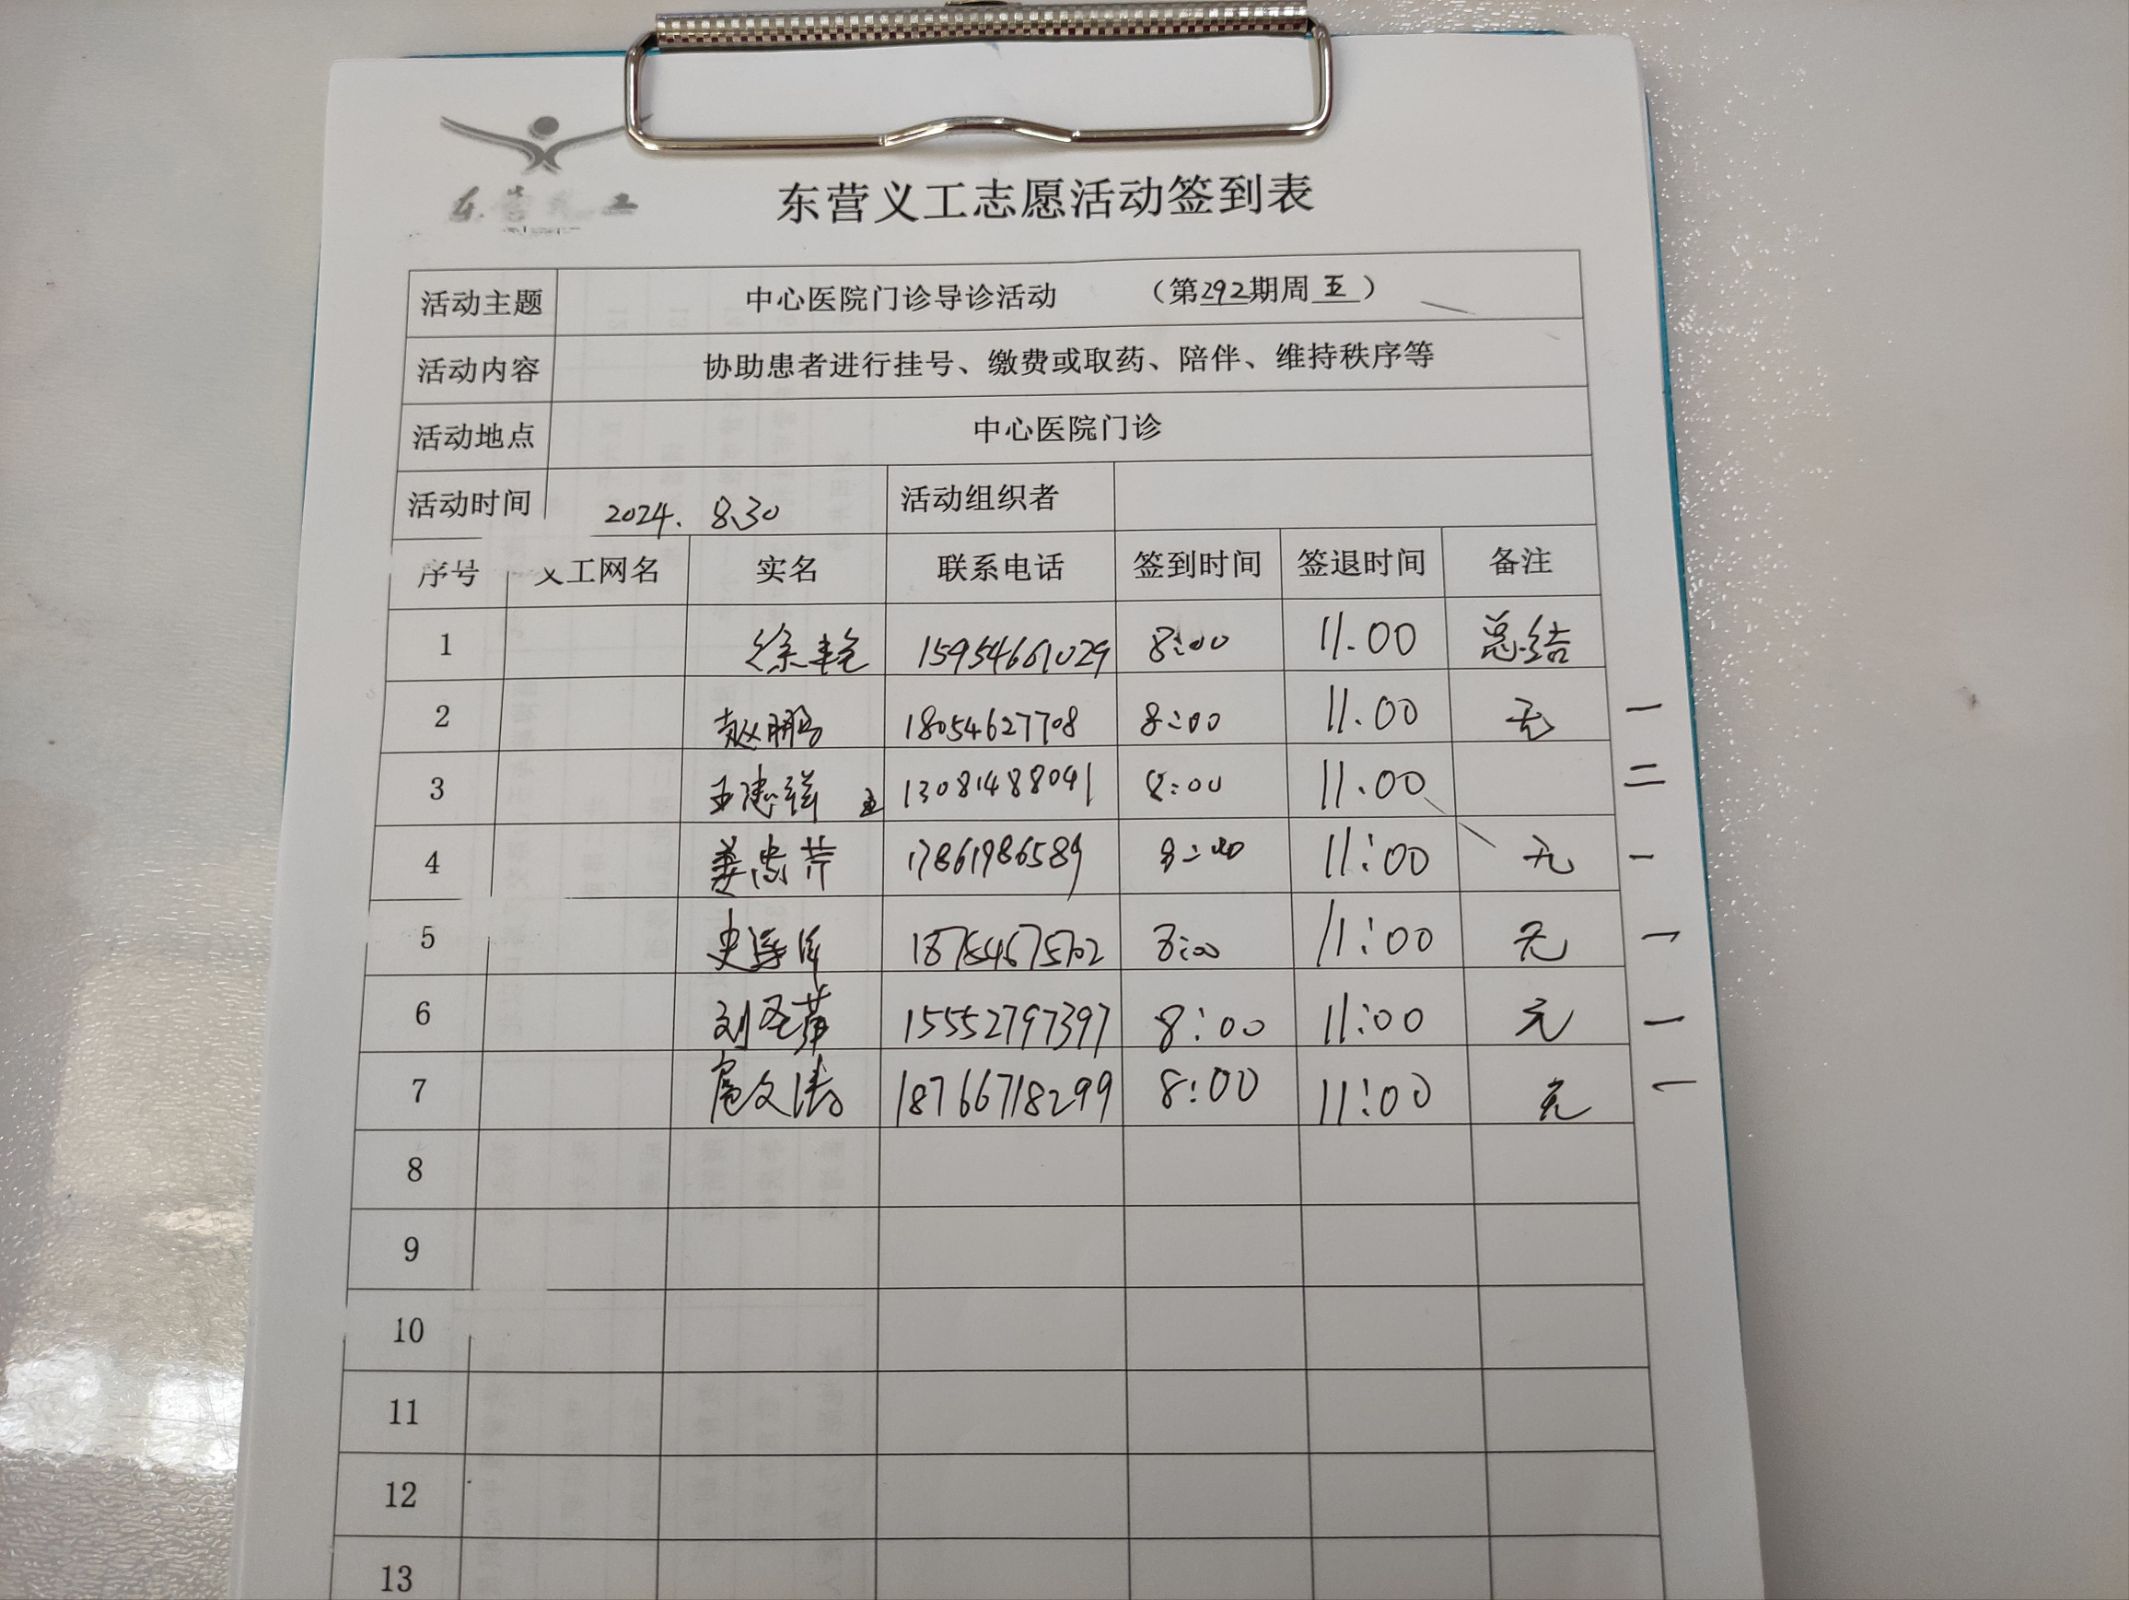 东营义工
东营义工志愿活动签到表
活动主题 中心医院门诊导诊活动 (第292期周五)
活动内容 协助患者进行挂号、缴费或取药、陪伴、维持秩序等
活动地点 中心医院门诊
活动时间 2024. 8.30 活动组织者
序号 义工网名 实名 联系电话 签到时间 签退时间 备注
1 徐艳 15954661029 8:00 11.00 总结
2 赵鹏 18054627708 8:00 11.00 无 一
3 13081488041 8:00 11.00 二
4 姜忠芹 17861986589 8:00 11:00 无 一
5 18754675702 8:00 11:00 无 一
6 15552797397 8:00 11:00 无 一
7 扈文涛 18766718299 8:00 11:00 无 一
8
9
10
11
12
13